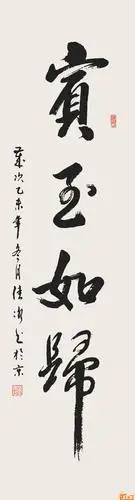 賓至如歸
歲次乙未年冬月佳安書於京